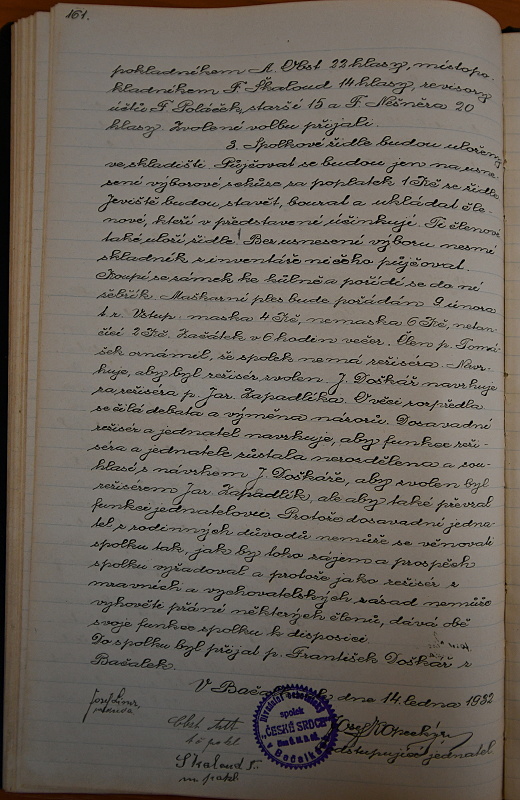 161.
pokladníkem A. Obst 22 hlasy, místopo-
kladníkem F. Škaloud 14 hlasy, revisory
účtů F. Poláček starší 15 a F. Nešněra 20
hlasy. Zvolení volbu přijali.
3. Spolkové židle budou uloženy
ve skladišti. Půjčovat se budou jen na usne-
sení výborové schůze za poplatek 1 Kč se židle.
Jeviště budou stavět, bourat a ukládat čle-
nové, kteří v představení účinkují. Ti členové
také uloží židle. Bez usnesení výboru nesmí
skladník z inventáře ničeho půjčovat.
Koupí se zámek ke kůlně a pořídí se do ní
žebřík. Maškarní ples bude pořádán 9. února
t. r. Vstup: maska 4 Kč, nemaska 6 Kč, netan-
čící 2 Kč. Začátek v 6 hodin večer. Člen p. Tomá-
šek oznámil, že spolek nemá režiséra. Navr-
huje, aby byl režisér zvolen. J. Doškář navrhuje
za režiséra p. Jar. Zapadlíka. O věci rozpředla
se čilá debata a výměna názorů. Dosavadní
režisér a jednatel navrhuje, aby funkce reži-
séra a jednatele zůstala nerozdělena a sou-
hlasí s návrhem J. Doškáře, aby zvolen byl
režisérem Jar. Zapadlík, ale aby také převzal
funkci jednatelovu. Protože dosavadní jedna-
tel z rodinných důvodů nemůže se věnovati
spolku tak, jak by toho zájem a prospěch
spolku vyžadoval a protože jako režisér z
mravních a vychovatelských zásad nemůže
vyhověti přání některých členů, dává obě
svoje funkce spolku k disposici.
Do spolku byl přijat p. František Doškář z
Bačalek.
V Bačalkách, dne 14. ledna 1932
Divadelní ochotnický
spolek
"ČESKÉ SRDCE"
v Bačalkách
Josef Kopecký
odstupující jednatel.
Obst
pokl.
Škaloud F.
m. pokl.